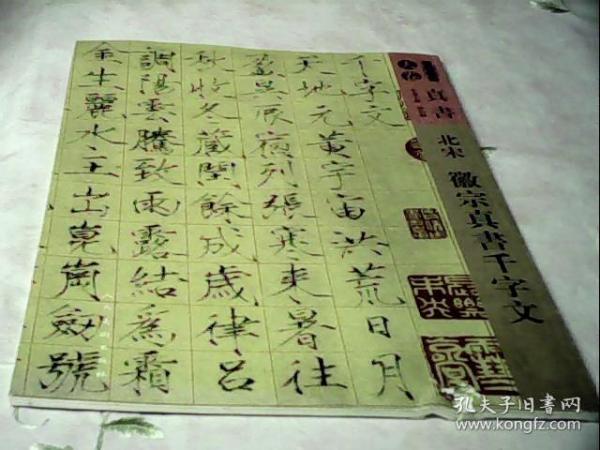 真書
北宋 徽宗真書千字文
千字文
天地元黄宇宙洪荒日月
盈昃辰宿列張寒来暑往
秋收冬藏閏餘成歲律呂
調陽雲騰致雨露結為霜
金生麗水玉出崑崗劒號
孔夫子旧书网
www.kongfz.com